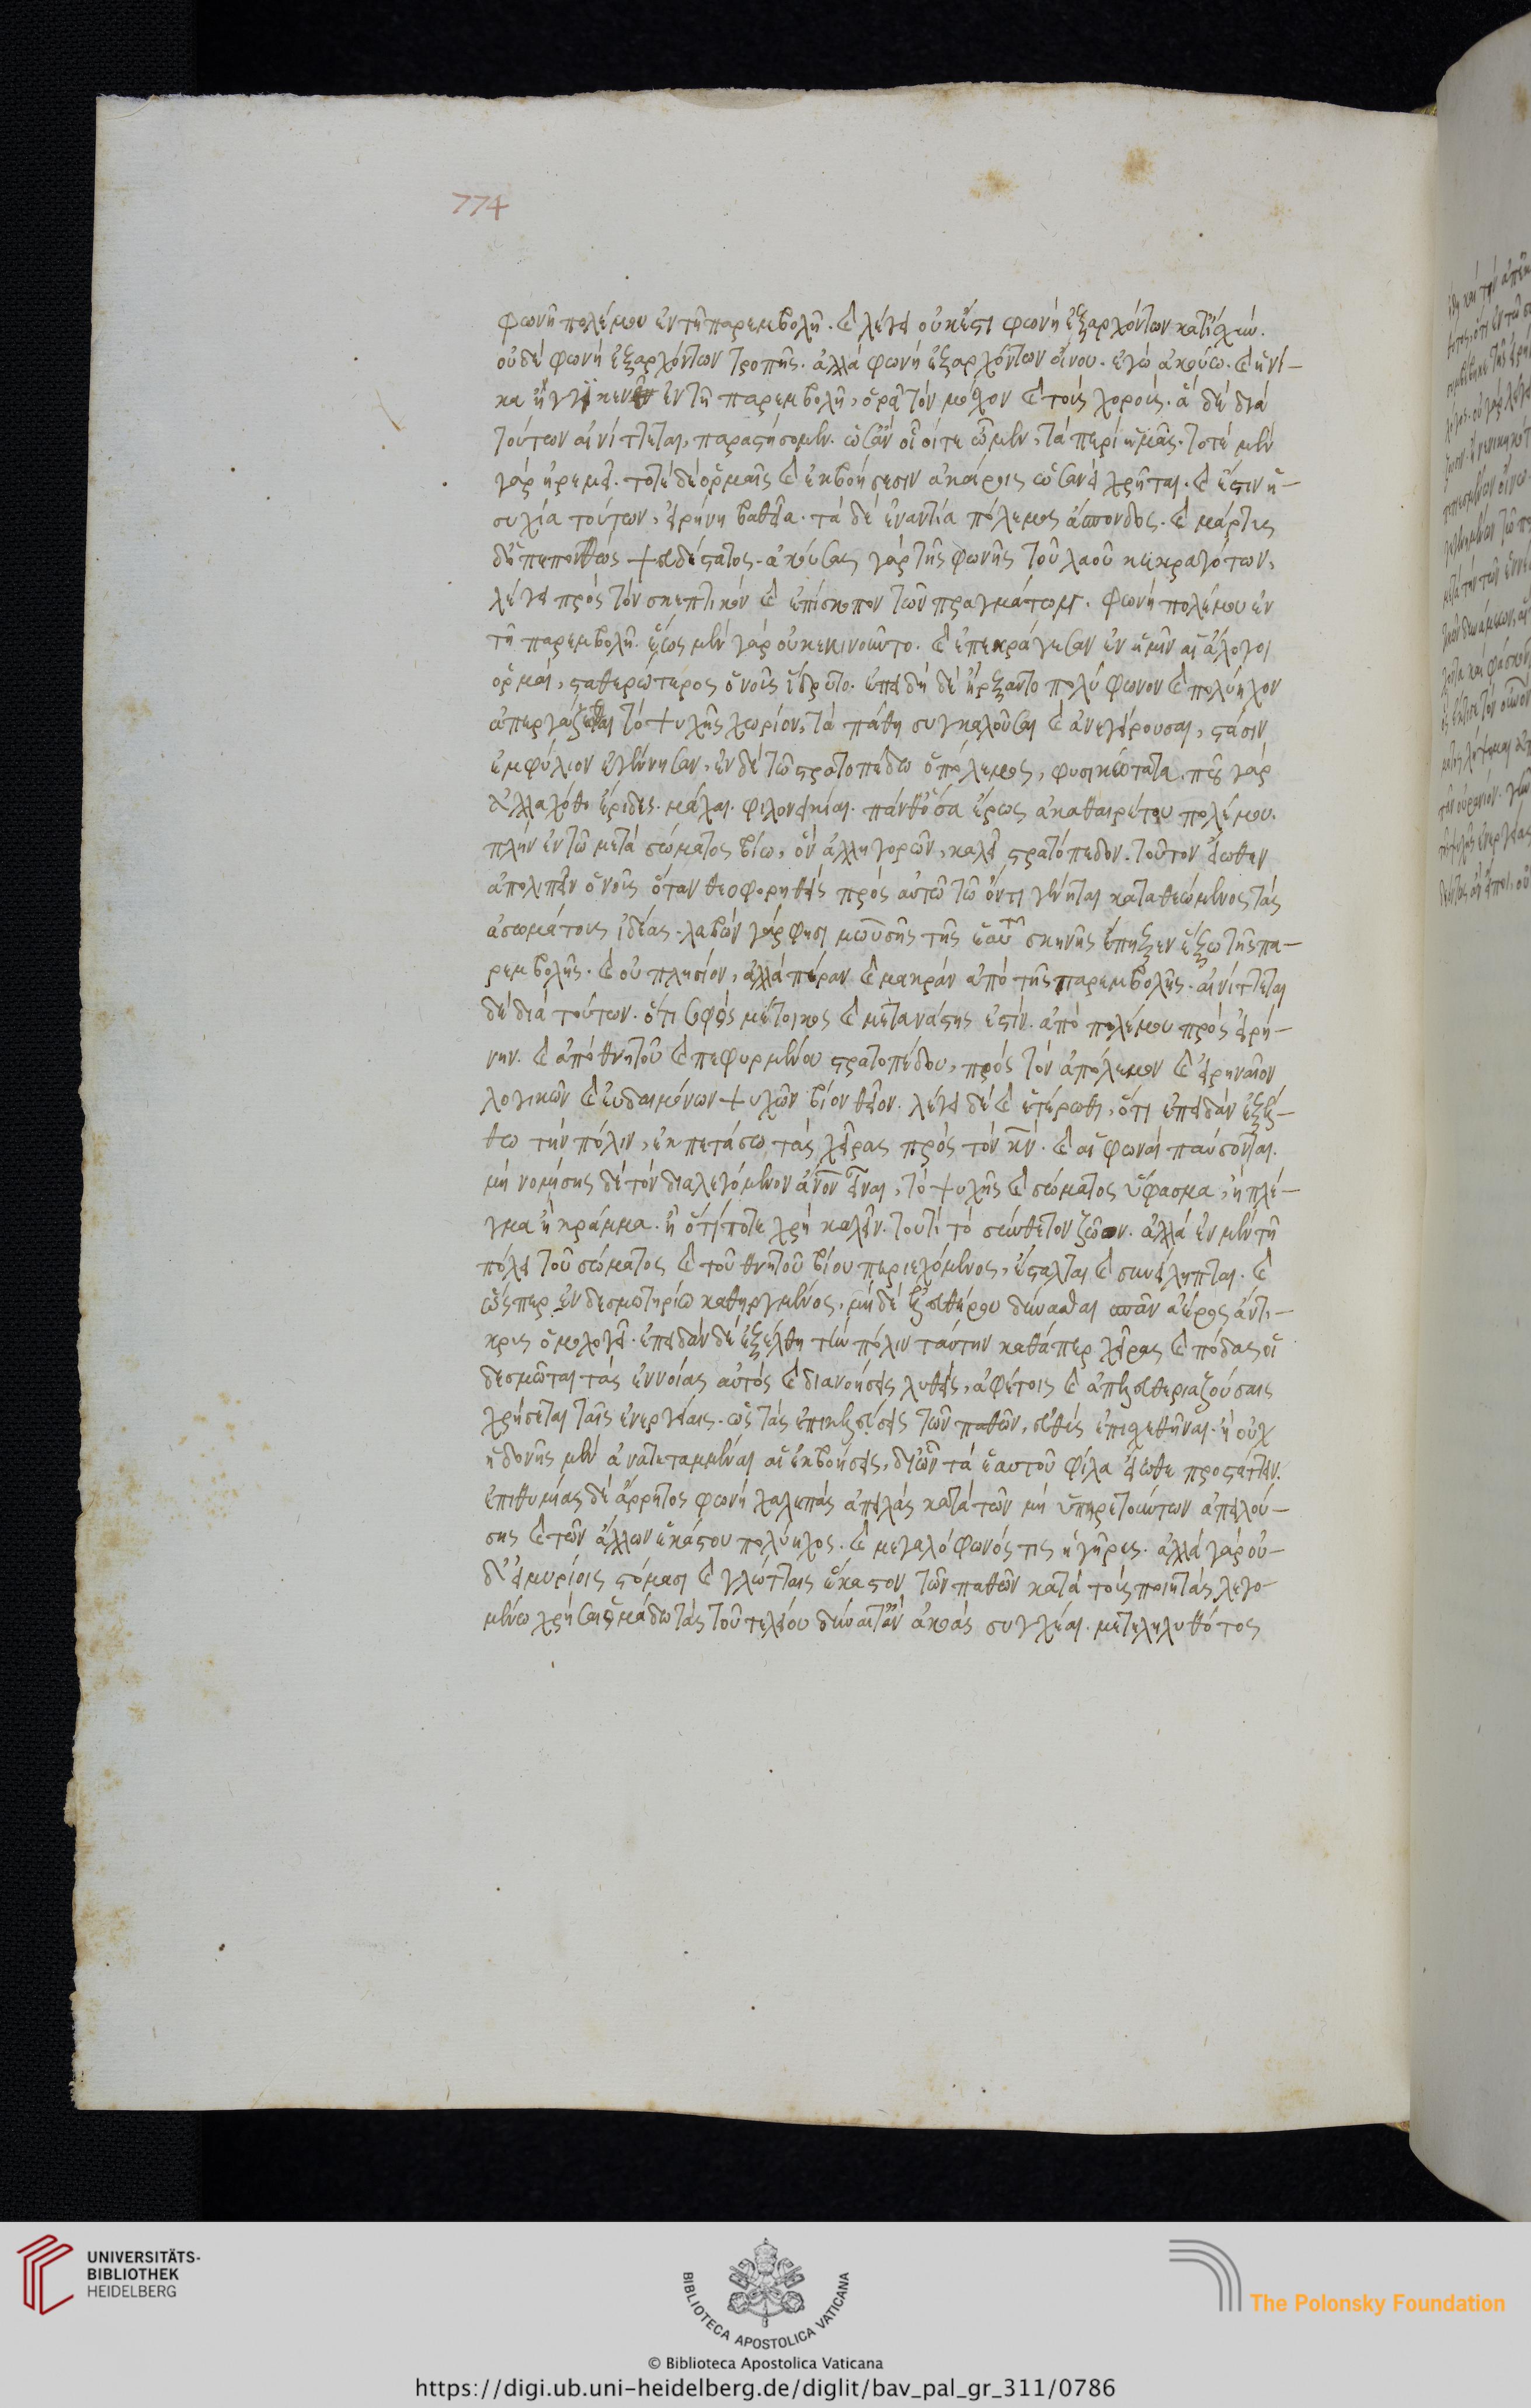 774
φωνὴ πολέμου ἐν τῇ παρεμβολῇ. καὶ λέγει οὐκ ἔστι φωνὴ ἐξαρχόντων κατ' ἰσχύν.
οὐδὲ φωνὴ ἐξαρχόντων τροπῆς. ἀλλὰ φωνὴ ἐξαρχόντων οἴνου. ἐγὼ ἀκούω. καὶ ἡνί-
κα ἤγγικεν ἐν τῇ παρεμβολῇ, ὁρᾷ τὸν μόσχον καὶ τοὺς χορούς. ἃ δὲ διὰ
τούτων αἰνίττεται, παραστήσομεν. ὡσὰν οἷοί τε ὦμεν, τὰ περὶ ἡμᾶς. τοτὲ μὲν
γὰρ ἠρεμεῖ. τοτὲ δὲ ὁρμαῖς καὶ ἐκβοήσεσιν ἀκαίροις ὡσανεὶ χρῆται. καὶ ἔστιν ἡ-
συχία τούτων, εἰρήνη βαθεῖα. τὰ δὲ ἐναντία πόλεμος ἄσπονδος. καὶ μάρτυς
δ' ὁ πεπονθὼς ἀψευδέστατος. ἀκούσας γὰρ τῆς φωνῆς τοῦ λαοῦ κεκραγότων,
λέγει πρὸς τὸν σκεπτικὸν καὶ ἐπίσκοπον τῶν πραγμάτων. φωνὴ πολέμου ἐν
τῇ παρεμβολῇ. ἕως μὲν γὰρ οὐκ ἐκινοῦντο. καὶ ἐπεκράγεσαν ἐν ἡμῖν αἱ ἄλογοι
ὁρμαί, σταθερώτερος ὁ νοῦς ἵδρυτο. ἐπειδὴ δὲ ἤρξαντο πολύφωνον καὶ πολύηχον
ἀπεργάζεσθαι τὸ ψυχῆς χωρίον, τὰ πάθη συγκαλοῦσαι καὶ ἀνεγείρουσαι, στάσιν
ἐμφύλιον ἐγέννησαν. ἐν δὲ τῷ στρατοπέδῳ ὁ πόλεμος, φυσικώτατα. ποῦ γὰρ
ἀλλαχόθι ἔριδες. μάχαι. φιλονεικίαι. πάνθ' ὅσα ἔργα ἀκαθαιρέτου πολέμου.
πλὴν ἐν τῷ μετὰ σώματος βίῳ, ὃν ἀλληγορῶν, καλεῖ στρατόπεδον. τοῦτον εἴωθεν
ἀπολιπεῖν ὁ νοῦς ὅταν θεοφορηθεὶς πρὸς αὐτῷ τῷ ὄντι γένηται καταθεώμενος τὰς
ἀσωμάτους ἰδέας. λαβὼν γάρ φησι μωυσῆς τῆς ἑαυτοῦ σκηνῆς ἔπηξεν ἔξω τῆς πα-
ρεμβολῆς. καὶ οὐ πλησίον, ἀλλὰ πόρρω καὶ μακρὰν ἀπὸ τῆς παρεμβολῆς. αἰνίττεται
δὲ διὰ τούτων. ὅτι σοφὸς μέτοικος καὶ μετανάστης ἐστίν. ἀπὸ πολέμου πρὸς εἰρή-
νην. καὶ ἀπὸ θνητοῦ καὶ πεφυρμένου στρατοπέδου, πρὸς τὸν ἀπόλεμον καὶ εἰρηναῖον
λογικῶν καὶ εὐδαιμόνων ψυχῶν βίον θεῖον. λέγει δὲ καὶ ἑτέρωθι, ὅτι ἐπειδὰν ἐξέλ-
θω τὴν πόλιν, ἐκπετάσω τὰς χεῖρας πρὸς τὸν κν. καὶ αἱ φωναὶ παύσονται.
μὴ νομίσῃς δὲ τὸν διαλεγόμενον ἄνον εἶναι, τὸ ψυχῆς καὶ σώματος ὕφασμα, ἢ πλέ-
γμα ἢ κράμμα. ἢ ὅ τί ποτε χρὴ καλεῖν. τουτὶ τὸ σύνθετον ζῷον. ἀλλὰ ἐν μὲν τῇ
πόλει τοῦ σώματος καὶ τοῦ θνητοῦ βίου περιεχόμενος, ἔσταλται καὶ συνείληπται. καὶ
ὥσπερ ἐν δεσμωτηρίῳ καθειργμένος, μηδὲ ἐλευθέρου δύνασθαι σπᾶν ἀέρος ἄντι-
κρυς ὁμολογεῖ. ἐπειδὰν δὲ ἐξέλθῃ τὴν πόλιν ταύτην καθάπερ χεῖρας καὶ πόδας οἱ
δεσμῶται τὰς ἐννοίας αὐτὸς καὶ διανοήσεις λυθείς, ἀφέτοις καὶ ἀπελευθεριαζούσαις
χρήσεται ταῖς ἐνεργείαις. ὡς τὰς ἐπικελεύσεις τῶν παθῶν, εὐθὺς ἐπισχεθῆναι. ἢ οὐχ
ἡδονῆς μὲν ἀνατεταμέναι αἱ ἐκβοήσεις, δι' ὧν τὰ ἑαυτοῦ φίλα εἴωθε προστάττειν.
ἐπιθυμίας δὲ ἄρρητος φωνὴ χαλεπὰς ἀπειλὰς κατὰ τῶν μὴ ὑπηρετούντων ἀπειλού-
σης καὶ τῶν ἄλλων ἑκάστου πολύηχος. καὶ μεγαλόφωνός τις ἡ γῆρυς. ἀλλὰ γὰρ οὐ-
δ' εἰ μυρίοις στόμασι καὶ γλώτταις ἕκαστον τῶν παθῶν κατὰ τοὺς ποιητὰς λεγο-
μένῳ χρήσαιτο ὁμάδῳ τὰς τοῦ τελείου δύναιτ' ἂν ἀκοὰς συγχέαι. μετεληλυθότος
UNIVERSITÄTS-
BIBLIOTHEK
HEIDELBERG
BIBLIOTECA APOSTOLICA VATICANA
The Polonsky Foundation
© Biblioteca Apostolica Vaticana
https://digi.ub.uni-heidelberg.de/diglit/bav_pal_gr_311/0786